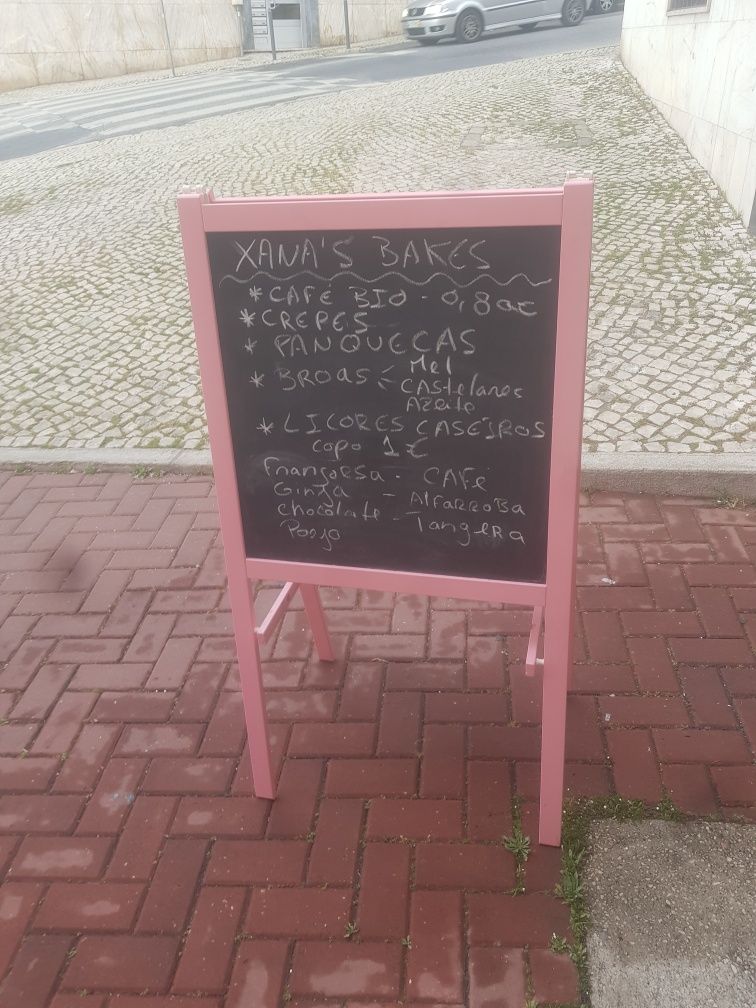 XANA'S BAKES
* CAFÉ BIO - 0,80€
* CREPES
* PANQUECAS
* BROAS - Mel
CASTELARES
AZEITE
* LICORES CASEIROS
COPO 1€
Framboesa - CAFÉ
Ginja - ALFARROBA
chocolate - TangeRa